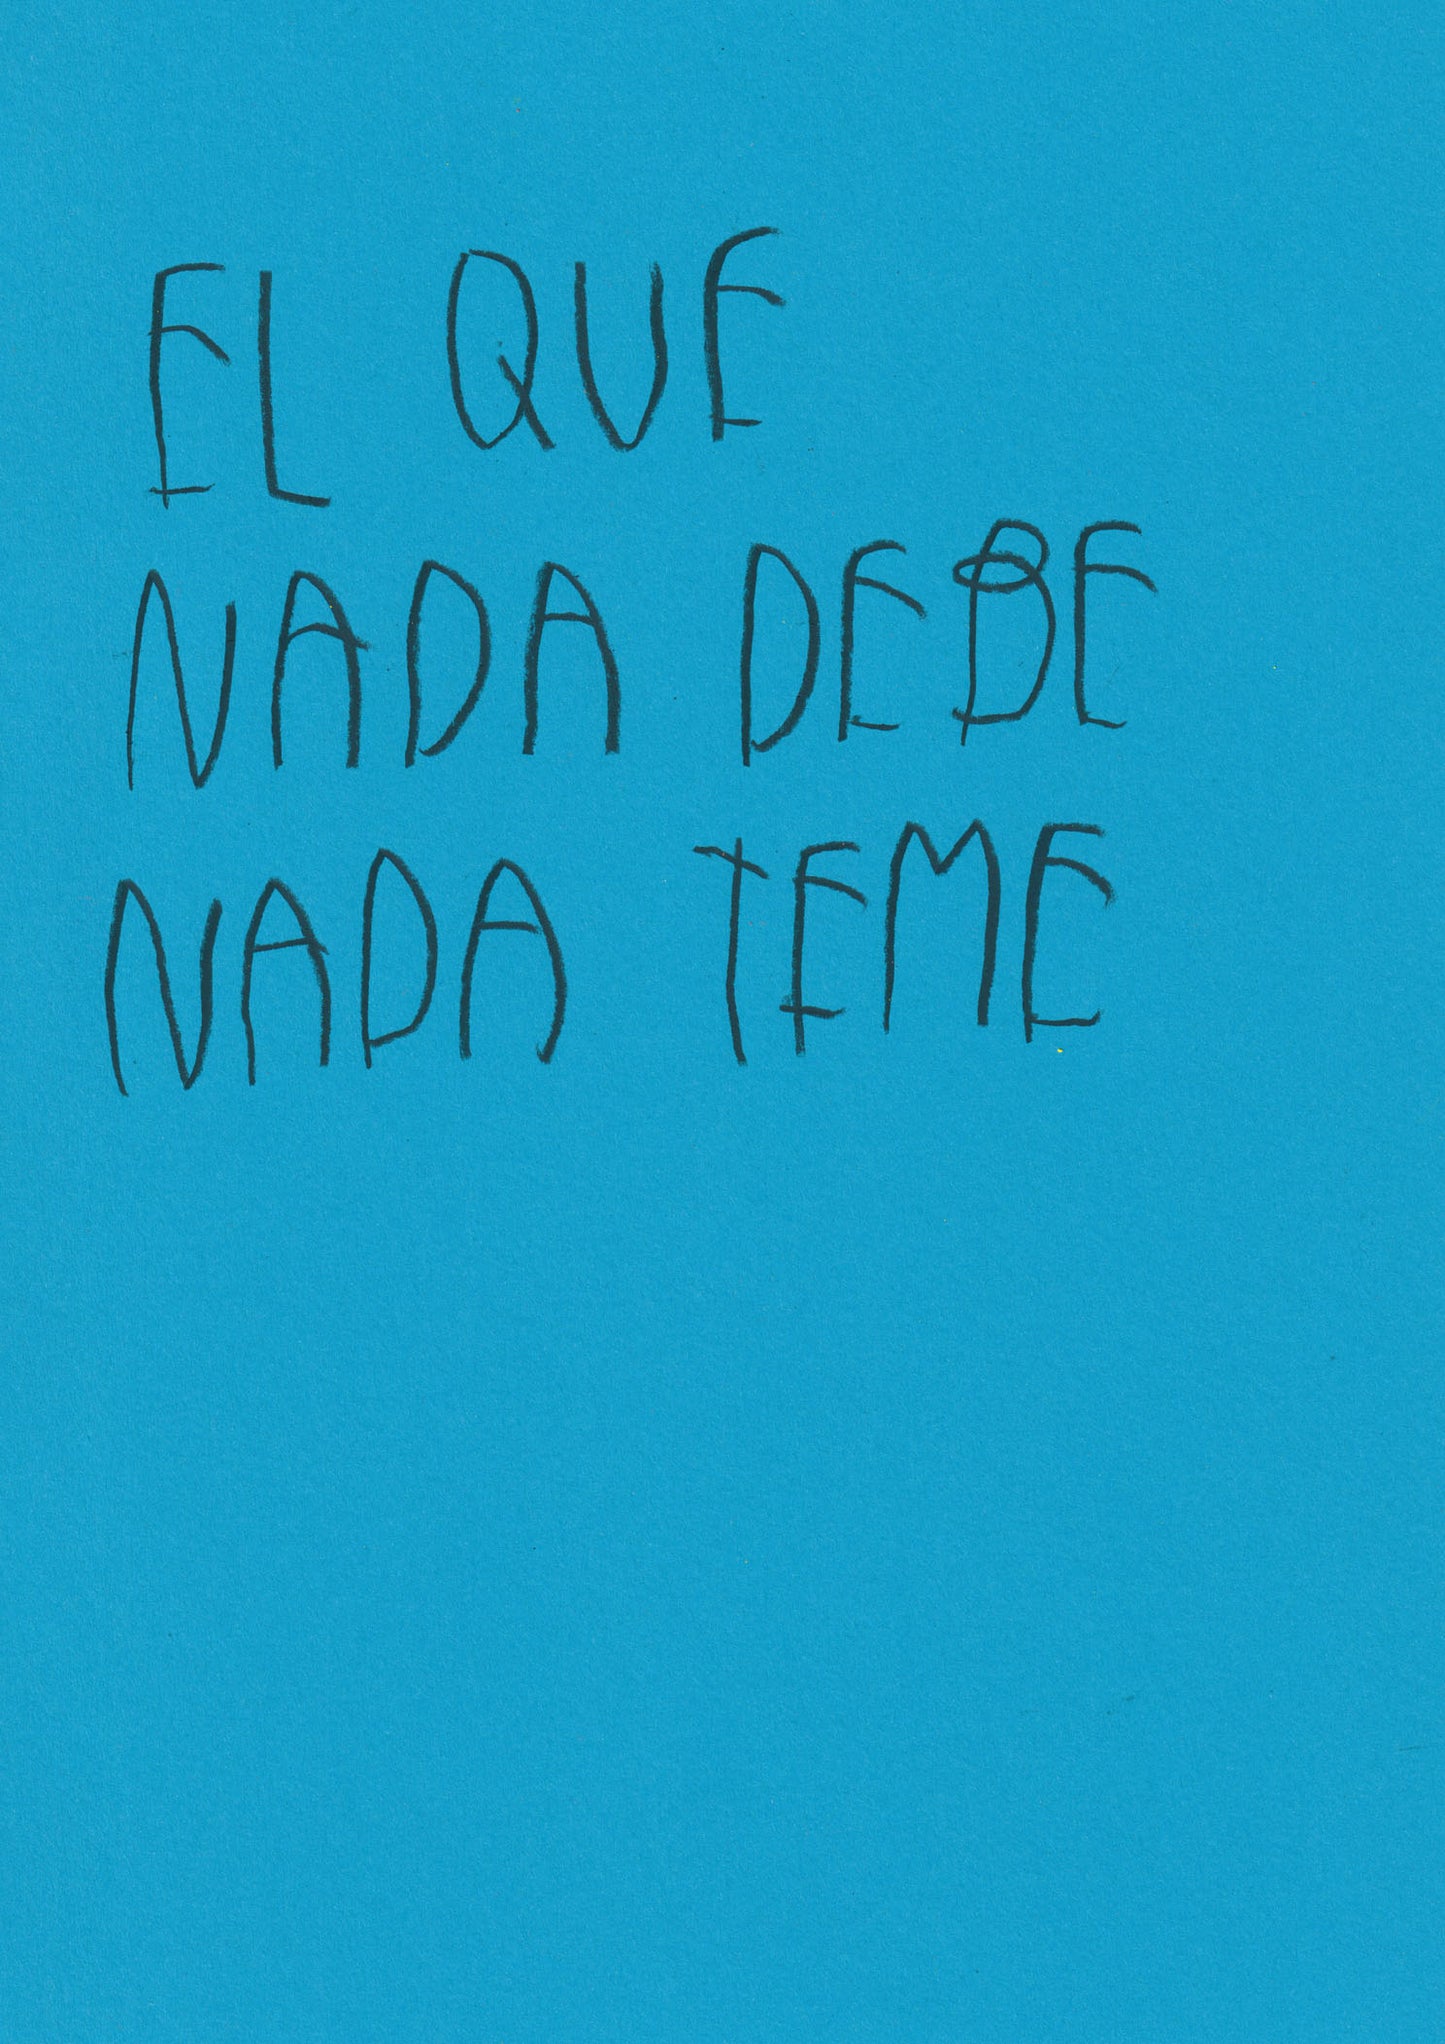 EL QUE
NADA DEBE
NADA TEME